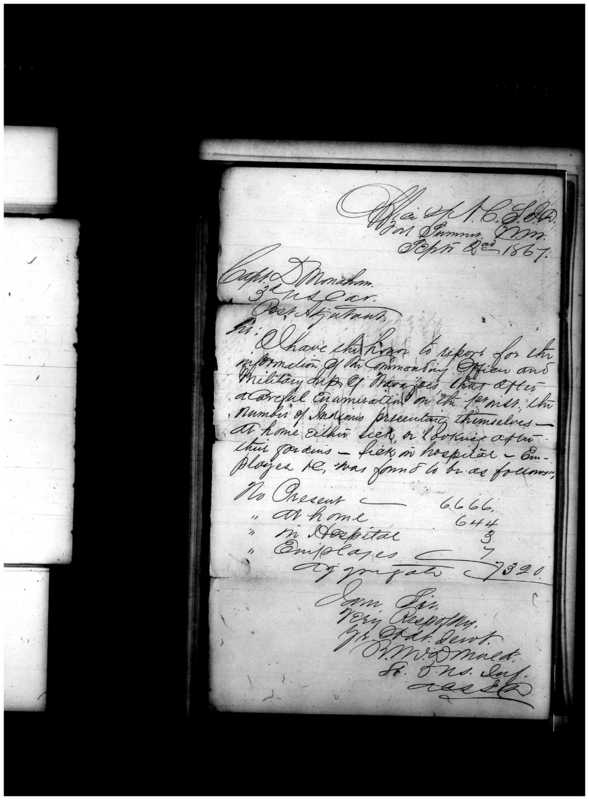 Office of A. C. S. Ind.
Fort Sumner, N.M.
Sept 2nd 1867.
Capt. D. Monahan.
3d U.S. Cav.
Post Adjutant
Sir:
I have the honor to report for the
information of the Commanding Officer and
Military Supt of Navajoes that after
a Careful Enumeration on the 1st inst, the
number of Indians presenting themselves —
at home either sick or looking after
their gardens — sick in hospital — Em-
ployes &c, was found to be as follows,
No Present — 6,666.
" at home 644
" in Hospital 3
" Employes — 7
aggregate 7320.
I am Sir,
Very Respctfy.
Yr. Obdt. Servt.
McDonald.
5 Inf.